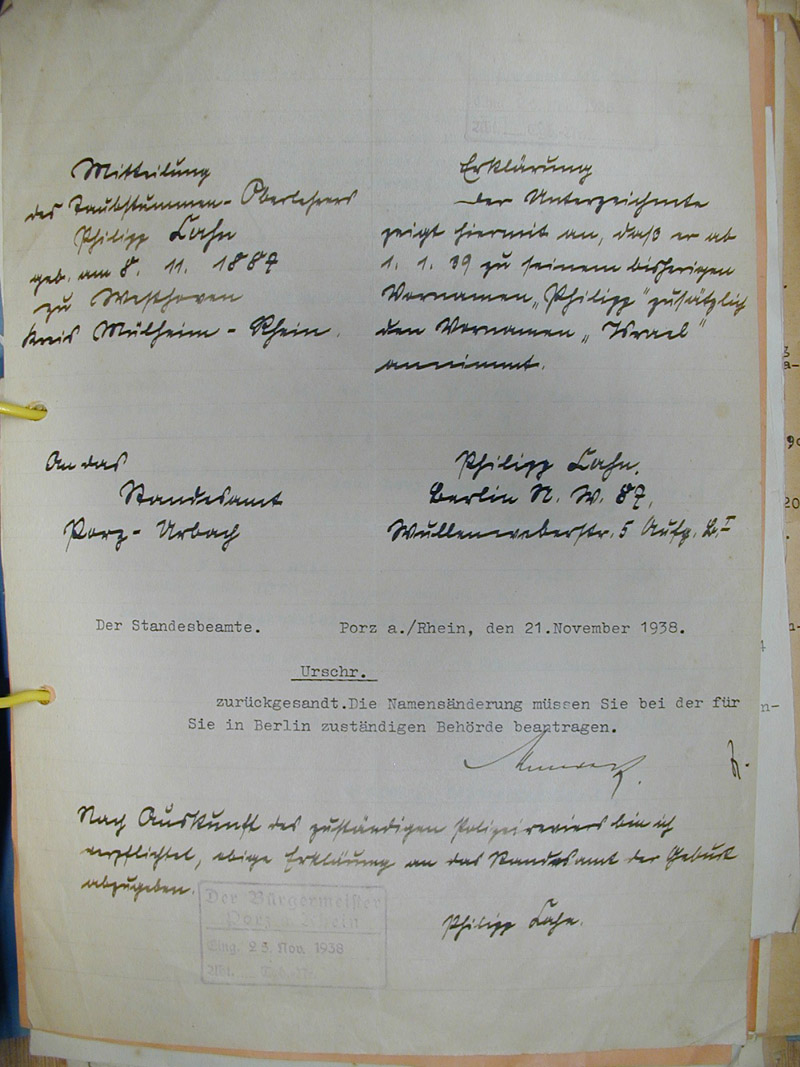 Mitteilung
des Taubstummen-Oberlehrers
Philipp Cahn
geb. am 8. 11. 1887
zu Westhoven
Kreis Mülheim-Rhein.
Erklärung
der Unterzeichnete
zeigt hiermit an, daß er ab
1. 1. 39 zu seinem bisherigen
Vornamen „Philipp" zusätzlich
den Vornamen „Israel"
annimmt.
An das
Standesamt
Porz-Urbach
Philipp Cahn.
Berlin N. W. 87,
Wullenweberstr. 5 Aufg. B. I
Der Standesbeamte. Porz a./Rhein, den 21.November 1938.
Urschr.
zurückgesandt.Die Namensänderung müssen Sie bei der für
Sie in Berlin zuständigen Behörde beantragen.
Nach Auskunft des zuständigen Polizeireviers bin ich
verpflichtet, obige Erklärung an das Standesamt der Geburt
abzugeben.
Philipp Cahn.
Der Bürgermeister
Porz a. Rhein
Eing. 25. Nov. 1938
Abt.